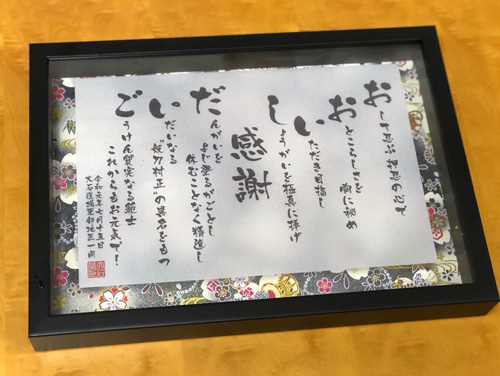 おして忍ぶ押忍の心で
胸に秘め
いただきを目指し
しょうがいを極真に捧げ
感謝
だんがいを
よじ登るがごとし
休むことなく精進し
いだいなる
“妖刀村正”の異名をもつ
ごうけん質実なる範士
これからもお元気で!
令和元年七月十五日
大石道場東部地区一同